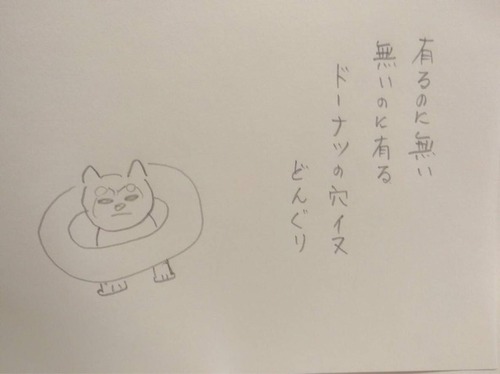 有るのに無い
無いのに有る
ドーナツの穴イヌ
どんぐり